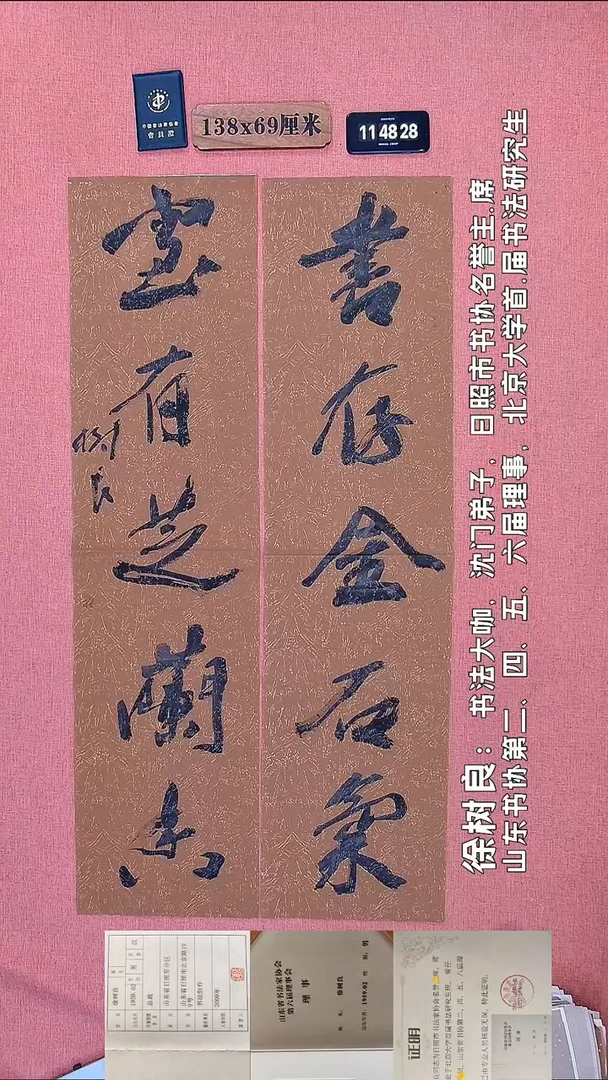 會員證
138x69厘米
11 48 28
書存金石氣
室有芝蘭香
树良
徐树良：书法大咖，沈门弟子，日照市书协名誉主.席
山东书协第二、四、五、六届理事，北京大学首.届书法研究生
徐树良
1959.02
男
汉
书法创作
2009年
山东省书法家协会
第六届理事会
理事
徐树良
1959.02
男
证明